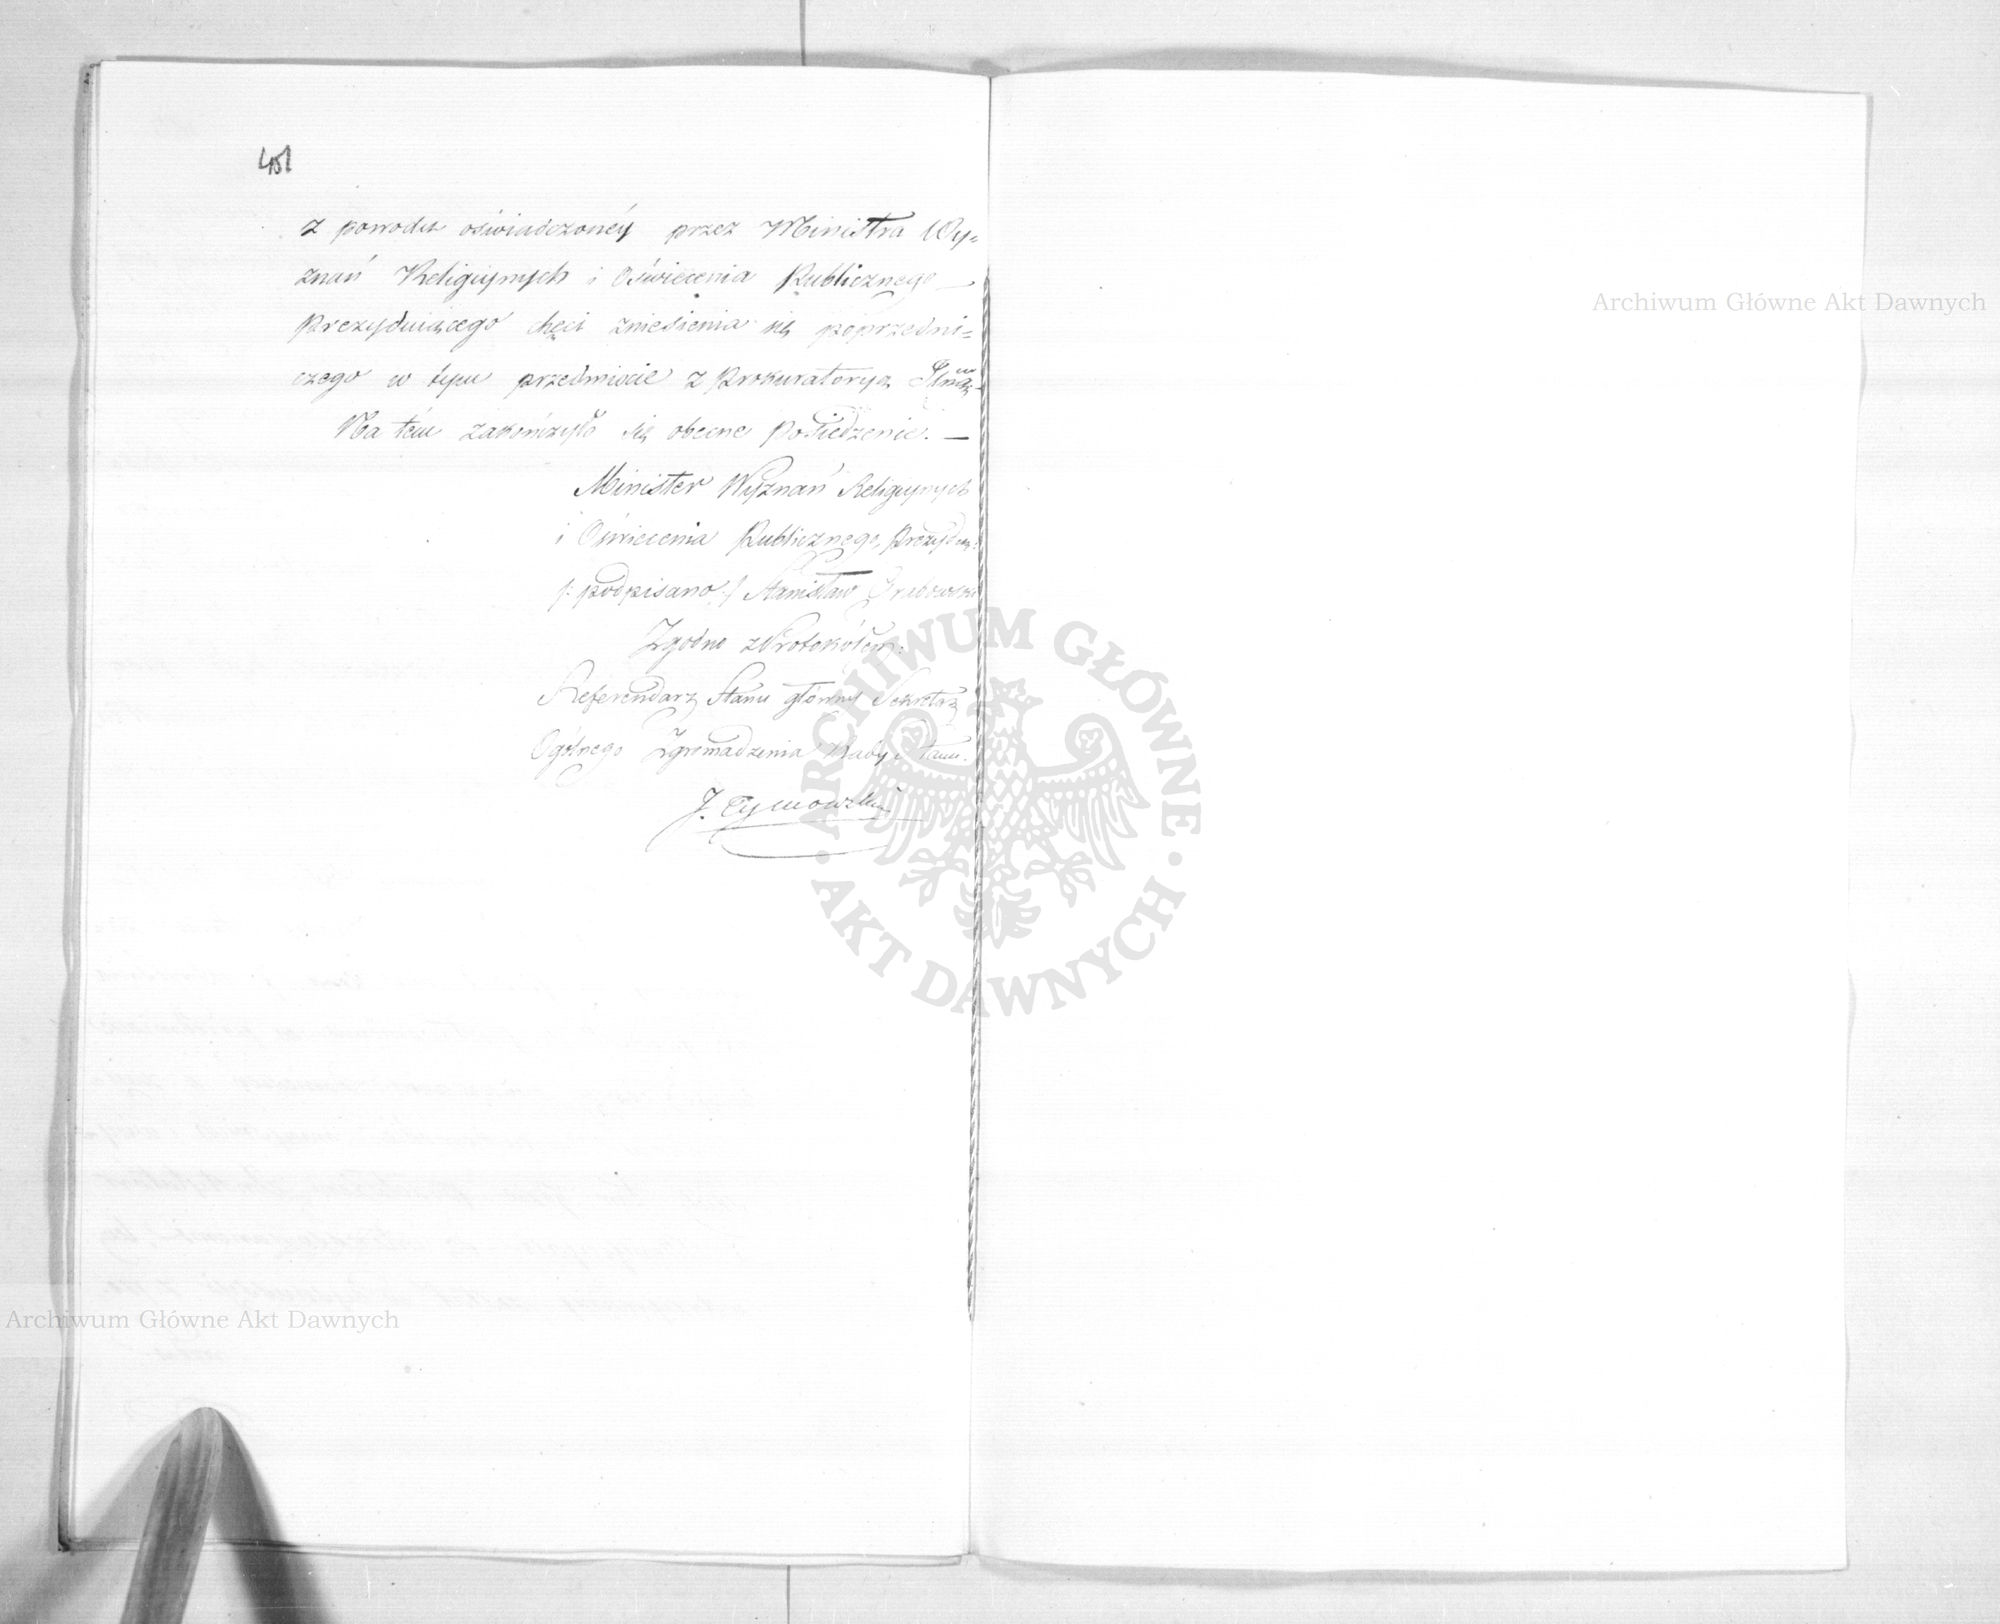 451
z powodu oświadczonéy przez Ministra Wy=
znań Religijnych i Oświecenia Publicznego
Prezyduiącego chęci zniesienia się poprzedni=
czego w tym przedmiocie z Prokuratoryą
Na tém zakończyło się obecne posiedzenie. —
Minister Wyznań Religijnych
i Oświecenia Publicznego, Prezyduią:
/: podpisano :/ Stanisław Grabowski
Zgodno z Protokółem:
Referendarz Stanu główny Sekretarz
Ogólnego Zgromadzenia Rady Stanu.
J. Tymowski
Archiwum Główne Akt Dawnych
ARCHIWUM GŁÓWNE
AKT DAWNYCH
Archiwum Główne Akt Dawnych